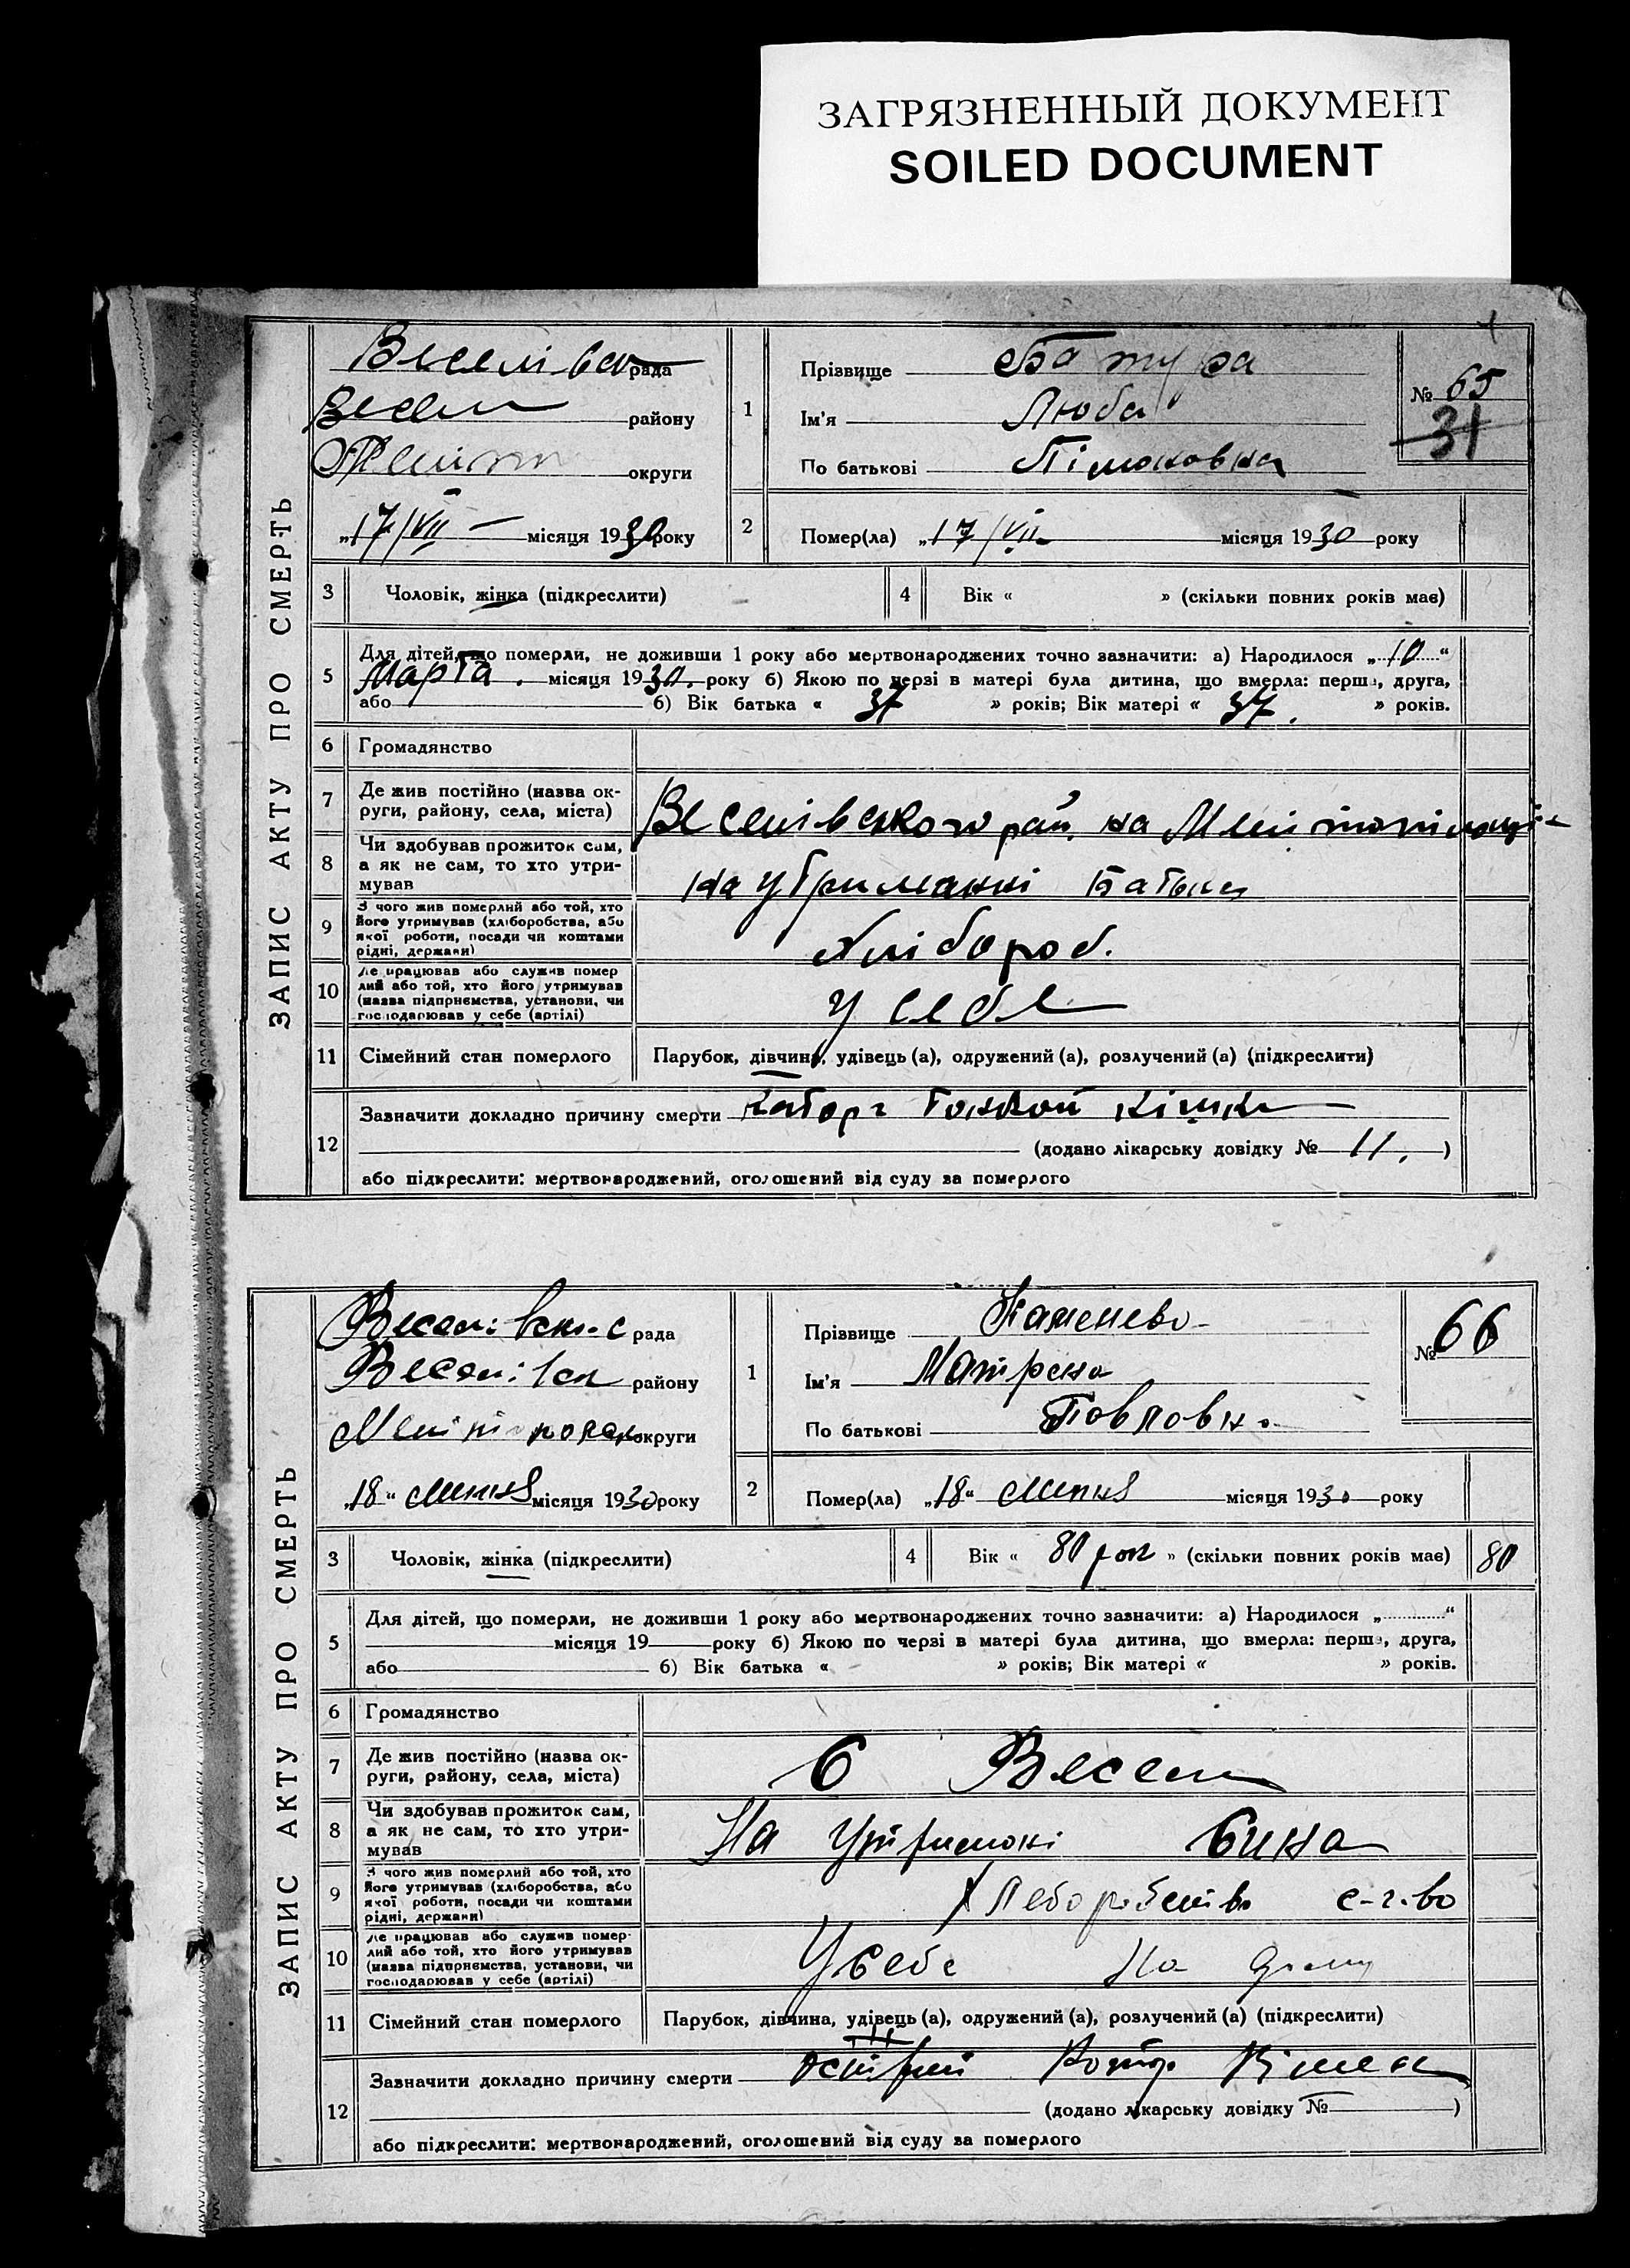 ЗАГРЯЗНЕННЫЙ ДОКУМЕНТ
SOILED DOCUMENT
ЗАПИС АКТУ ПРО СМЕРТЬ
рада
району
округи
„17/VII місяця 1930 року
1
Прізвище Батура
Ім'я Люба
По батькові
№ 65
31
2
Помер(ла) „17/VII місяця 1930 року
3 Чоловік, жінка (підкреслити)
4 Вік « » (скільки повних років має)
5 Для дітей, що померли, не доживши 1 року або мертвонароджених точно зазначити: а) Народилося „10“
Марта. місяця 1930. року б) Якою по черзі в матері була дитина, що вмерла: перша, друга,
або б) Вік батька « 37 » років; Вік матері « 37. » років.
6 Громадянство
7 Де жив постійно (назва ок-
руги, району, села, міста)
Веселівського рай. на
8 Чи здобував прожиток сам,
а як не сам, то хто утри-
мував
на утриманні Батька
9 З чого жив померлий або той, хто
його утримував (хліборобства, або
якої роботи, посади чи коштами
рідні, держави)
хлібороб.
10 Де працював або служив помер
лий або той, хто його утримував
(назва підприємства, установи, чи
господарював у себе (артілі)
у себе
11 Сімейний стан померлого Парубок, дівчина, удівець (а), одружений (а), розлучений (а) (підкреслити)
12 Зазначити докладно причину смерти
(додано лікарську довідку № 11. )
або підкреслити: мертвонароджений, оголошений від суду за померлого
ЗАПИС АКТУ ПРО СМЕРТЬ
рада
району
округи
„18“ липня місяця 1930 року
1
Прізвище Каменева
Ім'я Матрена
По батькові Павловна
№ 66
2
Помер(ла) „18“ липня місяця 1930 року
3 Чоловік, жінка (підкреслити)
4 Вік « 80 рок » (скільки повних років має) 80
5 Для дітей, що померли, не доживши 1 року або мертвонароджених точно зазначити: а) Народилося „ “
місяця 19 року б) Якою по черзі в матері була дитина, що вмерла: перша, друга,
або б) Вік батька « » років; Вік матері « » років.
6 Громадянство
7 Де жив постійно (назва ок-
руги, району, села, міста)
С Весел
8 Чи здобував прожиток сам,
а як не сам, то хто утри-
мував
На утримані сина
9 З чого жив померлий або той, хто
його утримував (хліборобства, або
якої роботи, посади чи коштами
рідні, держави)
с-г-во
10 Де працював або служив помер-
лий або той, хто його утримував
(назва підприємства, установи, чи
господарював у себе (артілі)
У себе на дому
11 Сімейний стан померлого Парубок, дівчина, удівець (а), одружений (а), розлучений (а) (підкреслити)
12 Зазначити докладно причину смерти
(додано лікарську довідку № )
або підкреслити: мертвонароджений, оголошений від суду за померлого